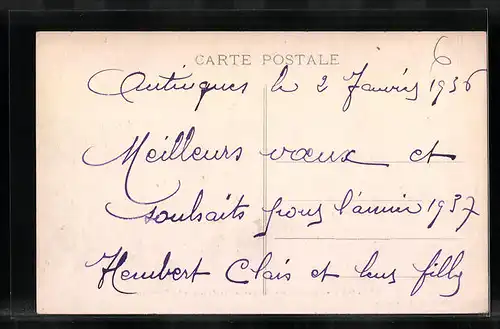 6
CARTE POSTALE
le 2 Janvier 1936
Meilleurs vœux et
souhaits pour l'année 1937
Hembert Clais et leurs filles